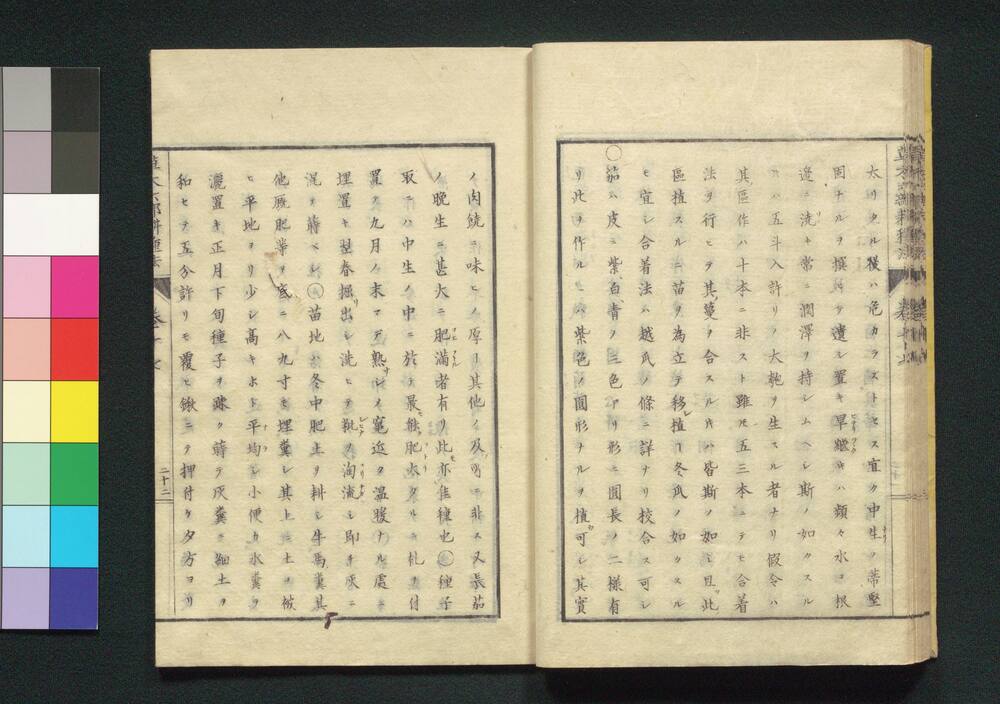 太リタル後ハ危カラストセス宜ク中生ノ蒂堅
固ナルヲ撰ミテ遺シ置キ旱魃ニハ頻々水ヲ根
邊ニ洗キ常ニ潤澤ヲ持シムヘシ斯ノ如クスル
ハ五斗入許リノ大匏ヲ生スル者ナリ假令ハ
其區作ハ十本ニ非スト雖𪜈五三本ニテモ合着
法ヲ行ヒテ其蔓ヲ合スルハ皆斯ノ如シ且此
區植スルニ苗ヲ為立テ移植ルハ冬瓜ノ如クスル
ニ宜シ合着法ハ越瓜ノ條ニ詳ナリ校合ス可シ
○茄ハ皮ニ紫白青ノ三色アリ形ニ圓長ノ二様有
リ此ヲ作ルニハ紫色ノ圓形ナルヲ植可シ其實
ノ肉饒ニ味ヒノ厚キ其他ノ及フ所ニ非ス又長茄
ノ晩生ニ甚大ニ肥滿者有リ此モ亦佳種也○種子
取ニハ中生ノ中ニ於テ最モ能肥大タルニ札ヲ付
置ク九月ノ末マテ熟サシメ竈近ク温暖ナル處ニ
埋置キ翌春掘リ出シ洗ヒテ粃ヲ淘流シ即チ灰ニ
混テ蒔ベシ○苗地ハ冬中肥土ヲ耕シ牛馬糞其
他厩肥等ヲ底ニ八九寸モ埋糞シ其上ニ土ヲ被
ヒ平地ヨリ少シ高キホト平均シ小便カ水糞ヲ
灑置キ正月下旬種子ヲ疎ク蒔テ灰糞ニ細土ヲ
和セテ五分許リモ覆ヒ鍬ニテ押付ケ夕方ヨリ
二十二